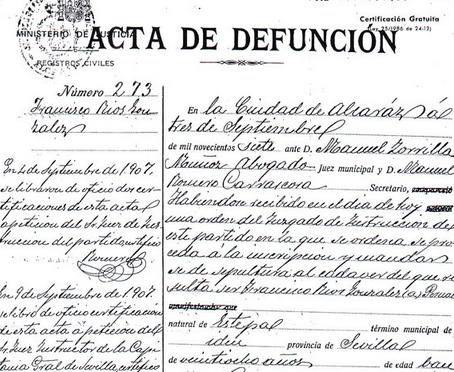 Certificación Gratuita
(Ley 25/1986 de 24-12)
MINISTERIO DE JUSTICIA
REGISTROS CIVILES
ACTA DE DEFUNCIÓN
Número 273
Francisco Rios Gon
zalez
En 4 de Septiembre de 1907.
se libraron de oficio dos cer
tificaciones de esta acta
a peticion del Sr Juez de Ins
truccion del partido certifico
Romero
En 9 de Septiembre de 1907.
se libró de oficio certificación
de esta acta á peticion del
Sr Juez Instructor de la Capi
tania Gral de Sevilla certifico
En la Ciudad de Alcaráz á
tres de Septiembre
de mil novecientos siete ante D. Manuel Zorrilla
Muñoz Abogado Juez municipal y D. Manuel
Romero Carrascosa Secretario,
Habiendose recibido en el dia de hoy
una orden del Juzgado de Instruccion de
este partido en la que se ordena se pro
ceda a la inscripcion y mandar
se de sepultura al cadaver del que re
sulta ser Francisco Rios Gonzalez (a)
natural de Estepa término municipal de
idem provincia de Sevilla
de veintiocho años de edad